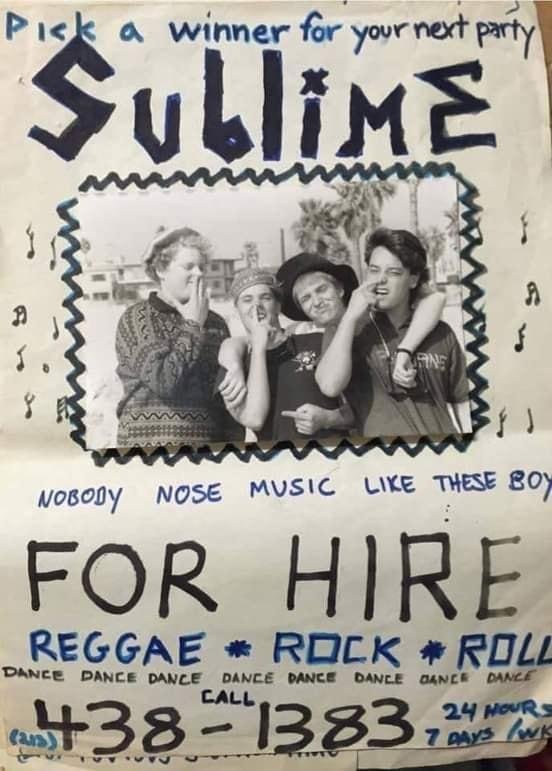 Pick a winner for your next party
SUBLIME
NOBODY NOSE MUSIC LIKE THESE BOY
FOR HIRE
REGGAE * ROCK * ROLL
DANCE DANCE DANCE DANCE DANCE DANCE DANCE DANCE
CALL
(213) 438-1383 24 HOURS
7 DAYS /WK